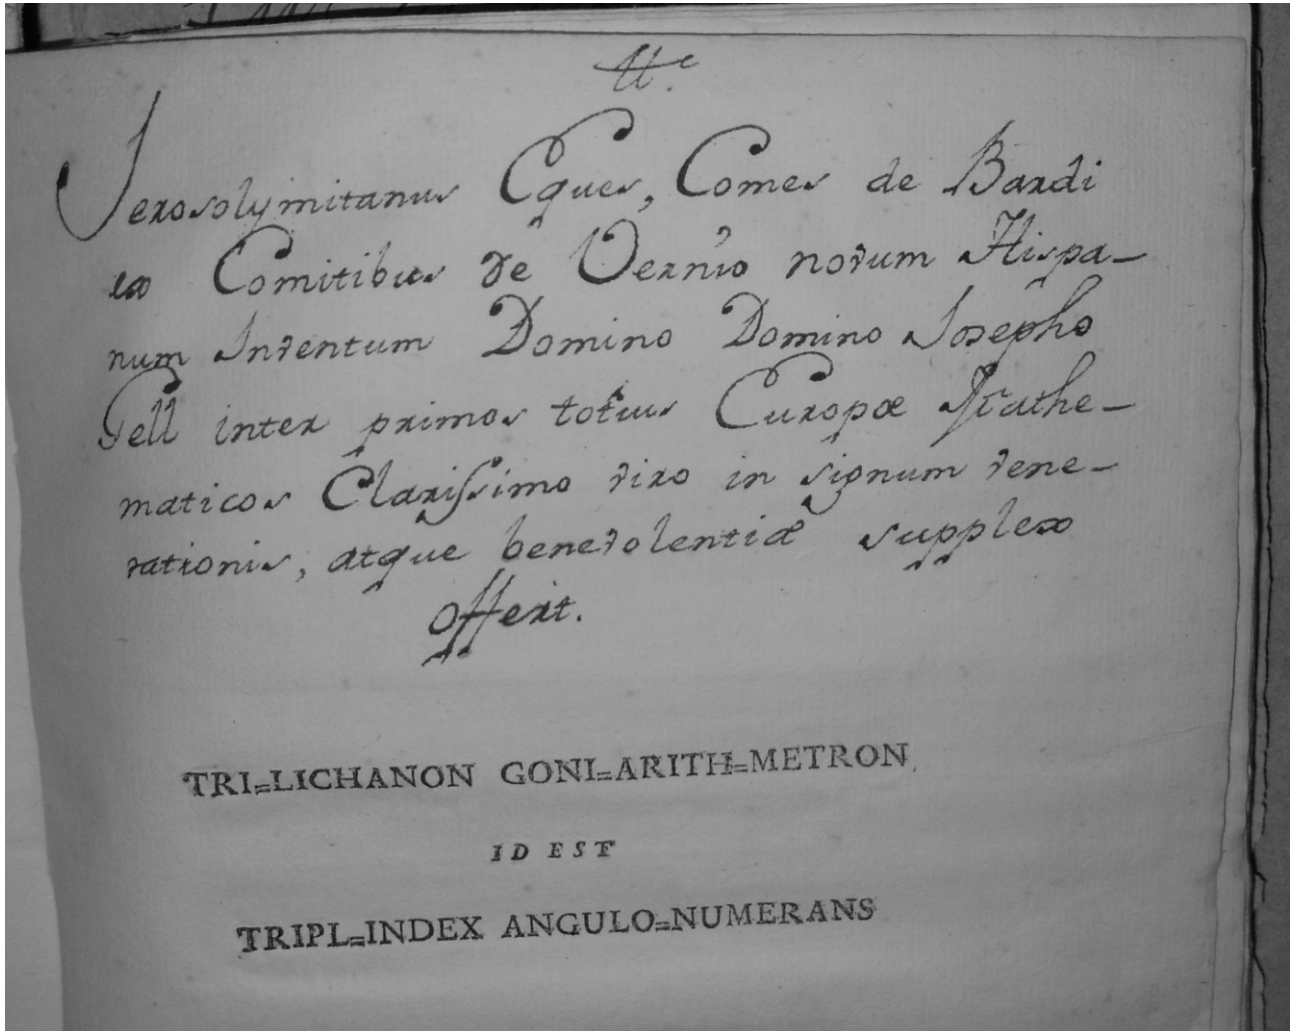 Jerosolymitanus Eques, Comes de Bardi
ex Comitibus de Vernio novum Hispa-
num Inventum Domino Domino Josepho
Fell inter primos totius Europæ Mathe-
maticos Clarissimo viro in signum vene-
rationis, atque benevolentiæ supplex
offert.
TRI=LICHANON GONI=ARITH=METRON
ID EST
TRIPL=INDEX ANGULO=NUMERANS